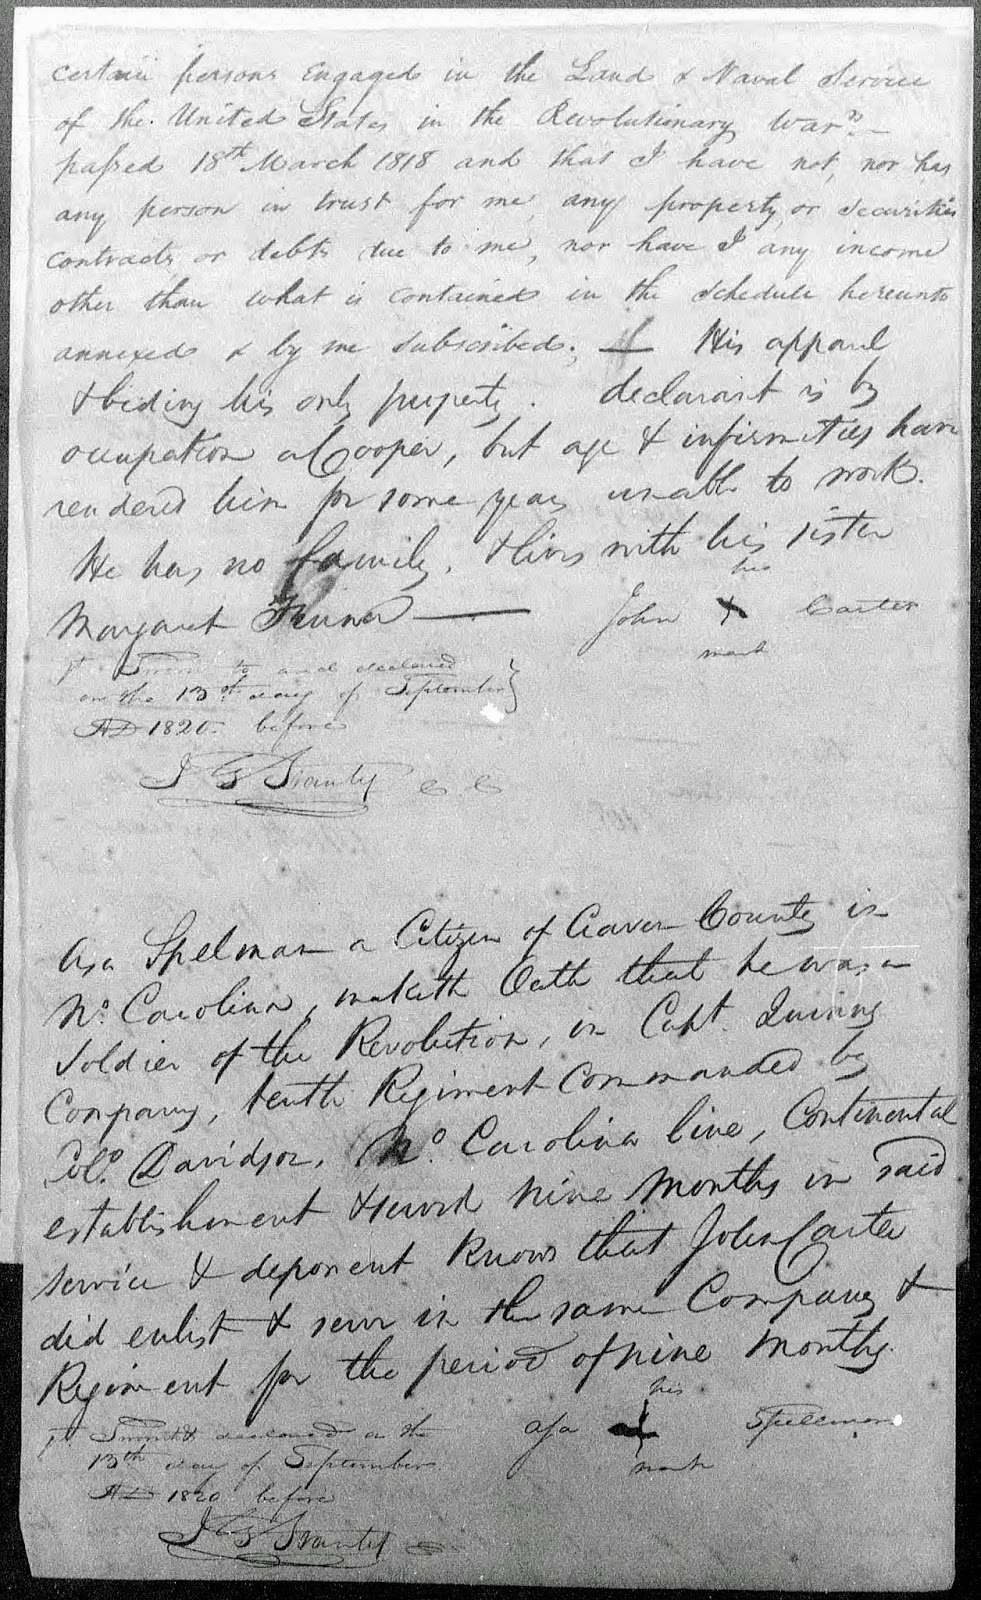 certain persons Engaged in the Land & Naval Service
of the United States in the Revolutionary War"—
passed 18th March 1818 and that I have not, nor has
any person in trust for me, any property, or securities
contracts, or debts due to me, nor have I any income
other than what is contained in the schedule hereunto
annexed & by me subscribed; — His apparel
& beding his only property. declarant is by
occupation a Cooper, but age & infirmities have
rendered him for some years unable to work.
He has no family, & lives with his sister
Margaret —
his
John + Carter
mark
Sworn to and declared
on the 13th day of September
AD 1820. before
J G Stanly C. C
Asa Spelman a Citizen of Craven County in
No. Carolina, maketh Oath that he was a
soldier of the Revolution, in Capt.
Company, tenth Regiment Commanded by
Colo. Davidson, No. Carolina line, Continental
establishment & served nine months in said
service & deponent knows that John Carter
did enlist & serve in the same Company &
Regiment for the period of nine months.
his
Asa + Spellman
mark
Sworn & declared on the
13th day of September
AD 1820 before
J G Stanly